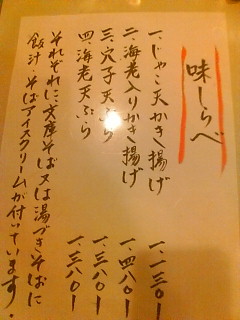 味しらべ
一、じゃこ天かき揚げ 一、一三〇ー
二、海老入りかき揚げ 一、四八〇ー
三、穴子天ぷら 一、三八〇ー
四、海老天ぷら 一、三八〇ー
それぞれに、文庫そば又は湯づきそばに
飯汁 そばアイスクリームが付いています。